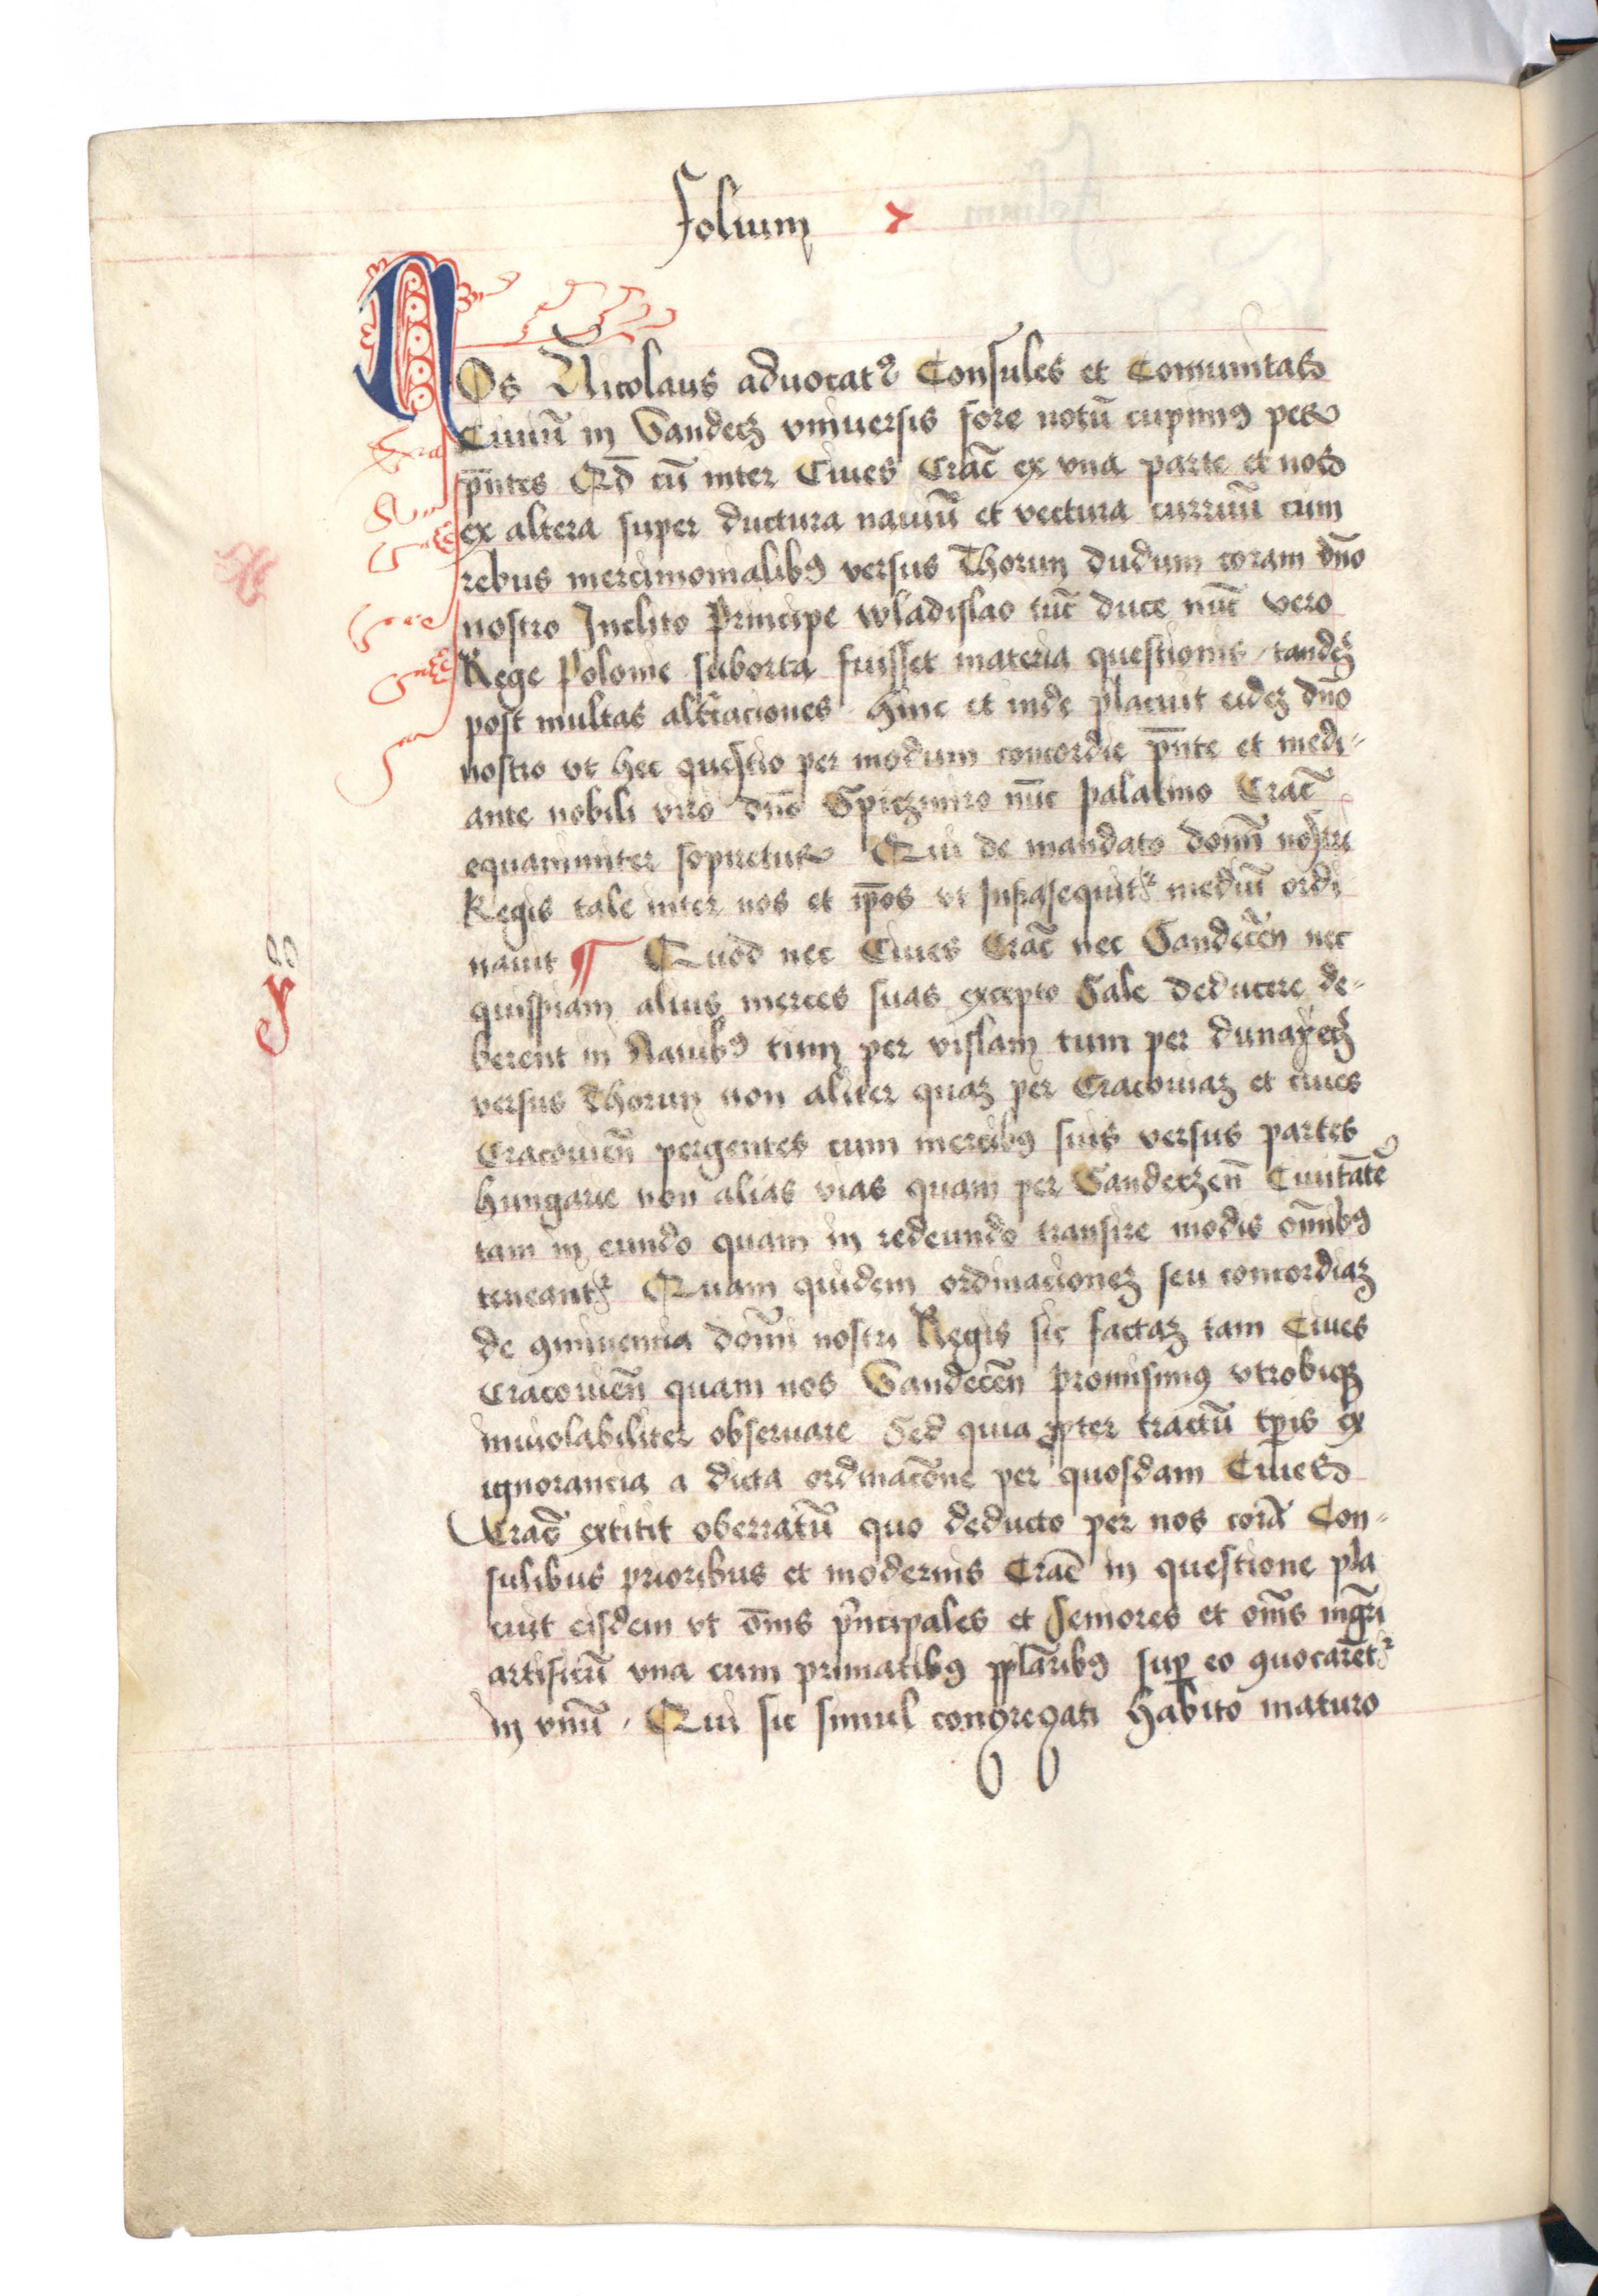 Folium
NOs Nicolaus aduocatꝰ Consules et Comunitas
Ciuiū in Sandecz vniuersis fore notū cupimꝰ per
p̄ntes Qd̄ cū inter Ciues Crac̄ ex vna parte et nos
ex altera super ductura nauiū et vectura curruū cum
rebus mercimonialibꝰ versus Thorun dudum coram dn̄o
nostro Inclito Principe wladislao tūc duce nūc vero
Rege Polonie suborta fuisset materia questionis / tandeʒ
post multas alt̄raciones hinc et inde placuit eideʒ dn̄o
nostro vt hec questio per modum concordie p̄nte et medi⸗
ante nobili viro dn̄o Spiczimiro nūc palatino Crac̄
equanimiter sopiretur Qui de mandato domī nostri
Regis tale inter nos et ip̄os vt infrasequit᷑ mediū ordi
nauit ¶ Quod nec Ciues Crac̄ nec Sandecēn nec
quispiam alius merces suas excepto Sale deducere de⸗
berent in Nauibꝰ tum per vislam tum per dunayecʒ
versus Thorun non aliter quaʒ per Cracouiaʒ et ciues
Cracouieñ pergentes cum mercibꝰ suis versus partes
hungarie non alias vias quam per Sandeczeñ Ciuitatē
tam in eundo quam in redeundo transire modis om̄ibꝰ
teneant᷑ Quam quidem ordinacioneʒ seu concordiaʒ
de ꝯniuencia domī nostri Regis sic factaʒ tam Ciues
Cracouieñ quam nos Sandecēn promisimꝰ vtrobiqʒ
inuiolabiliter obseruare Sed quia ꝓpter tractū tꝑis ex
ignorancia a dicta ordinacōne per quosdam Ciues
Crac̄ extitit oberratū quo deducto per nos corā Con⸗
sulibus prioribus et modernis Crac̄ in questione pla
cuit eisdem vt om̄s p̄ncipales et Seniores et om̄s mgr̄i
artificū vna cum primatibꝰ pplaribꝰ suꝑ eo ꝯuocarēt᷑
in vnū / Qui sic simul congregati habito maturo